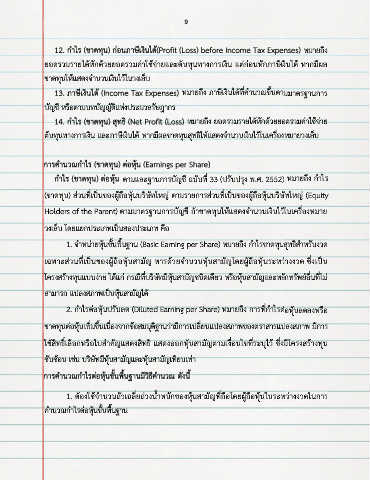 9
12. กำไร (ขาดทุน) ก่อนภาษีเงินได้(Profit (Loss) before Income Tax Expenses) หมายถึง
ยอดรวมรายได้หักด้วยยอดรวมค่าใช้จ่ายและต้นทุนทางการเงิน แต่ก่อนหักภาษีเงินได้ หากมีผล
ขาดทุนให้แสดงจำนวนเงินไว้ในวงเล็บ
13. ภาษีเงินได้ (Income Tax Expenses) หมายถึง ภาษีเงินได้ที่คำนวณขึ้นตามมาตรฐานการ
บัญชี หรือตามบทบัญญัติแห่งประมวลรัษฎากร
14. กำไร (ขาดทุน) สุทธิ (Net Profit (Loss) หมายถึง ยอดรวมรายได้หักด้วยยอดรวมค่าใช้จ่าย
ต้นทุนทางการเงิน และภาษีเงินได้ หากมีผลขาดทุนสุทธิให้แสดงจำนวนเงินไว้ในเครื่องหมายวงเล็บ
การคำนวณกำไร (ขาดทุน) ต่อหุ้น (Earnings per Share)
กำไร (ขาดทุน) ต่อหุ้น ตามมาตรฐานการบัญชี ฉบับที่ 33 (ปรับปรุง พ.ศ. 2552) หมายถึง กำไร
(ขาดทุน) ส่วนที่เป็นของผู้ถือหุ้นบริษัทใหญ่ ตามรายการส่วนที่เป็นของผู้ถือหุ้นบริษัทใหญ่ (Equity
Holders of the Parent) ตามมาตรฐานการบัญชี ถ้าขาดทุนให้แสดงจำนวนเงินไว้ในเครื่องหมาย
วงเล็บ โดยแยกประเภทเป็นสองประเภท คือ
1. กำไรต่อหุ้นขั้นพื้นฐาน (Basic Earning per Share) หมายถึง กำไรขาดทุนสุทธิสำหรับงวด
เฉพาะส่วนที่เป็นของผู้ถือหุ้นสามัญ หารด้วยจำนวนหุ้นสามัญโดยผู้ถือหุ้นระหว่างงวด ซึ่งเป็น
โครงสร้างทุนแบบง่าย ได้แก่ กรณีที่บริษัทมีหุ้นสามัญชนิดเดียว หรือหุ้นสามัญและหลักทรัพย์อื่นที่ไม่
สามารถ แปลงสภาพเป็นหุ้นสามัญได้
2. กำไรต่อหุ้นปรับลด (Diluted Earning per Share) หมายถึง การที่กำไรต่อหุ้นลดลงหรือ
ขาดทุนต่อหุ้นเพิ่มขึ้นเนื่องจากข้อสมมุติฐานว่ามีการเปลี่ยนแปลงสภาพของตราสารแปลงสภาพ มีการ
ใช้สิทธิ์เลือกหรือใบสำคัญแสดงสิทธิ แสดงออกหุ้นสามัญตามเงื่อนไขที่ระบุไว้ ซึ่งมีโครงสร้างทุน
ซับซ้อน เช่น บริษัทมีหุ้นสามัญและหุ้นสามัญเทียบเท่า
การคำนวณกำไรต่อหุ้นขั้นพื้นฐานมีวิธีคำนวณ ดังนี้
1. ต้องใช้จำนวนถัวเฉลี่ยถ่วงน้ำหนักของหุ้นสามัญที่ถือโดยผู้ถือหุ้นในระหว่างงวดในการ
คำนวณกำไรต่อหุ้นขั้นพื้นฐาน